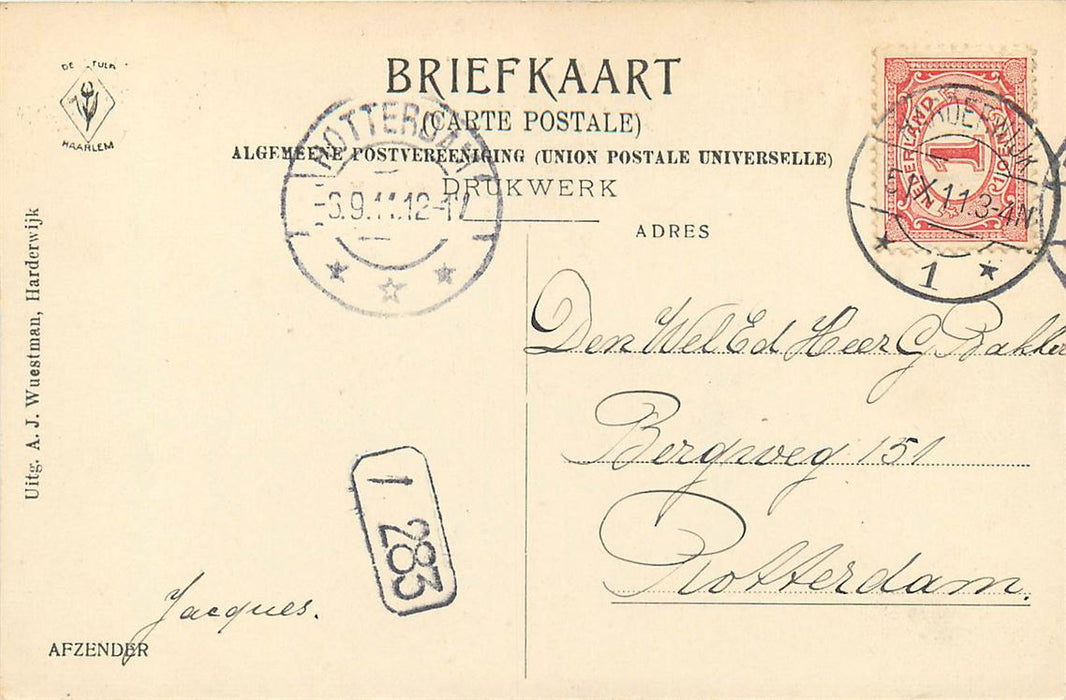 DE TULP
HAARLEM
BRIEFKAART
(CARTE POSTALE)
ALGEMEENE POSTVEREENIGING (UNION POSTALE UNIVERSELLE)
DRUKWERK
ADRES
ROTTERDAM
-6.9.11.12-1V
NEDERLAND
1
HARDERWIJK
5 11.3-4N
1
Uitg. A. J. Wuestman, Harderwijk
Den WelEd Heer G Bakker
Bergweg 151
Rotterdam.
1 283
Jacques.
AFZENDER